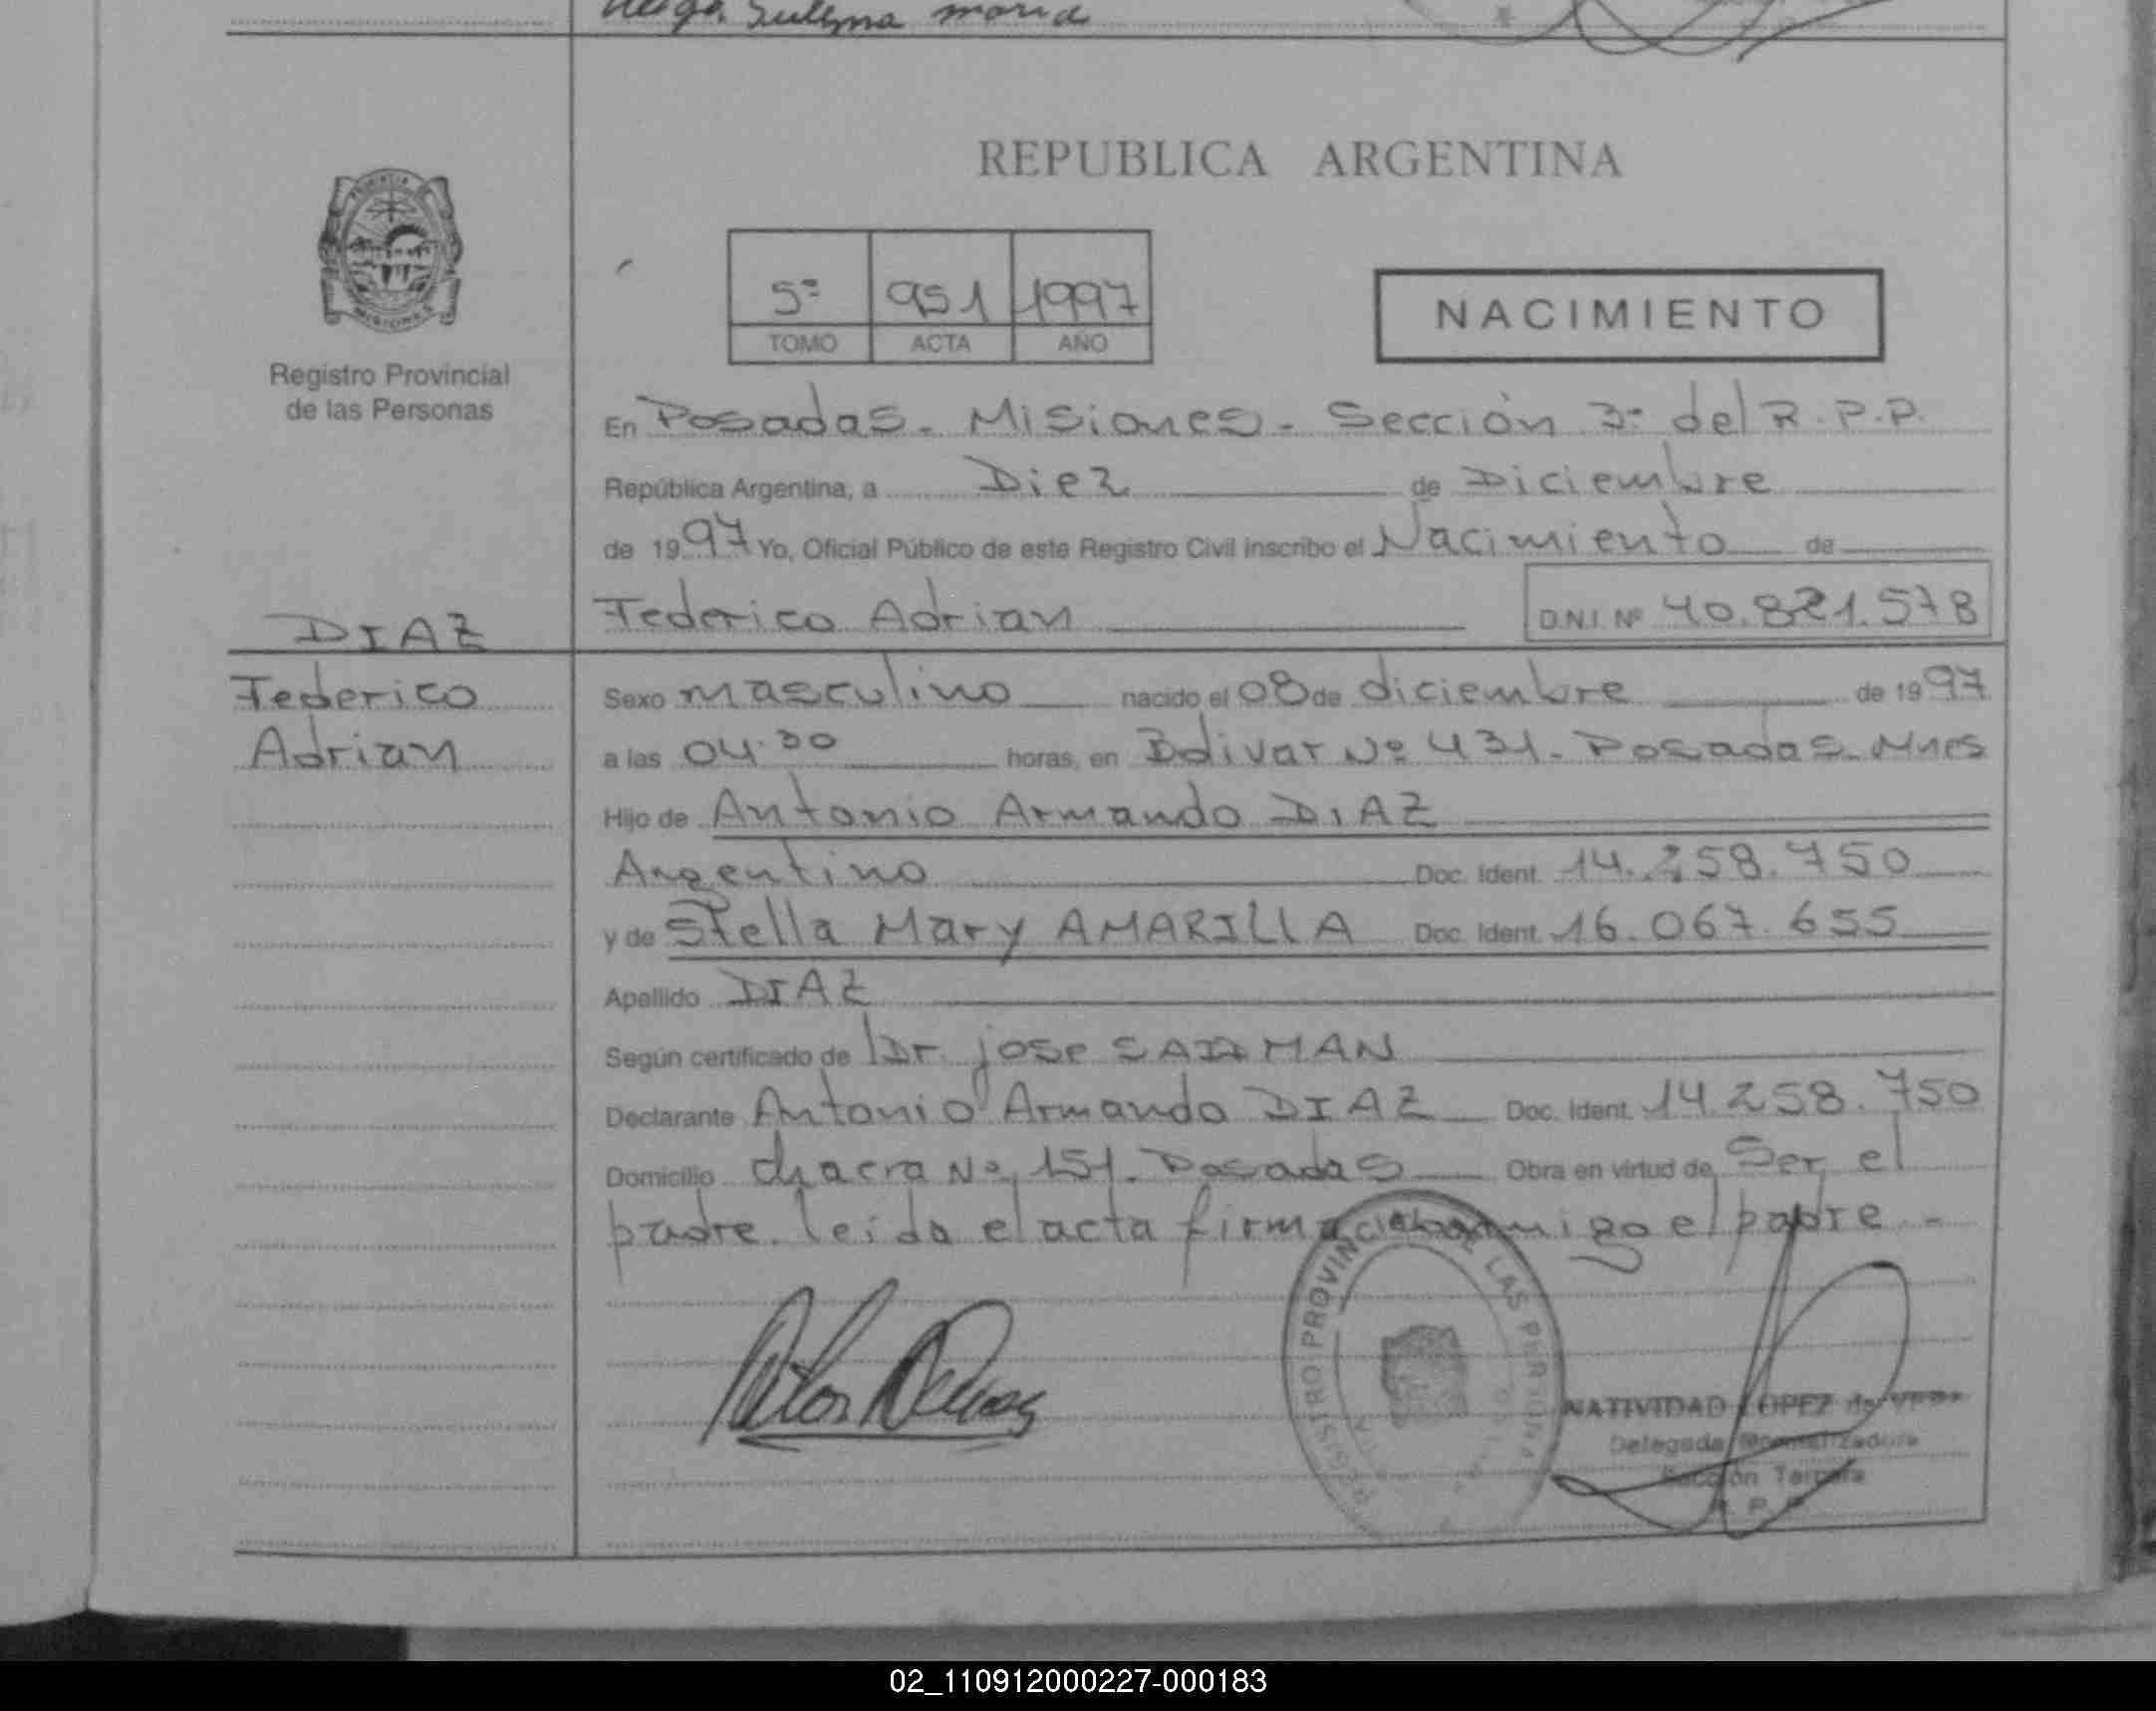 Sulema Maria
REPUBLICA ARGENTINA
MISIONES
Registro Provincial
de las Personas
5º 951 1997
TOMO ACTA AÑO
NACIMIENTO
En Posadas - Misiones - Sección 3º del R.P.P.
República Argentina, a Diez de Diciembre
de 1997 Yo, Oficial Público de este Registro Civil inscribo el Nacimiento de
DIAZ
Federico Adrian D.N.I. Nº 40.821.578
Federico
Adrian
Sexo masculino nacido el 08 de diciembre de 1997
a las 04.30 horas, en Bolivar Nº 431 - Posadas - Mnes
Hijo de Antonio Armando DIAZ
Argentino Doc. Ident. 14.258.750
y de Stella Mary AMARILLA Doc. Ident. 16.067.655
Apellido DIAZ
Según certificado de Dr. jose
Declarante Antonio Armando DIAZ Doc. Ident. 14.258.750
Domicilio chacra Nº 151. Posadas Obra en virtud de Ser el
padre. leida el acta firma conmigo el padre -
REGISTRO PROVINCIAL DE LAS PERSONAS
NATIVIDAD LOPEZ de
Delegada Normalizadora
Sección Tercera
R. P. P.
02_110912000227-000183